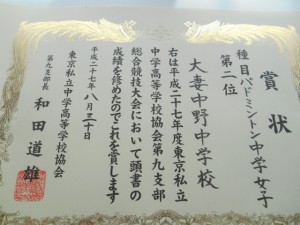 賞状
種目バドミントン中学女子
第二位
大妻中野中学校
右は平成二十七年度東京私立
中学高等学校協会第九支部
総合競技大会において頭書の
成績を修めたのでこれを賞します
平成二十七年八月三十日
東京私立中学高等学校協会
第九支部長 和田道雄